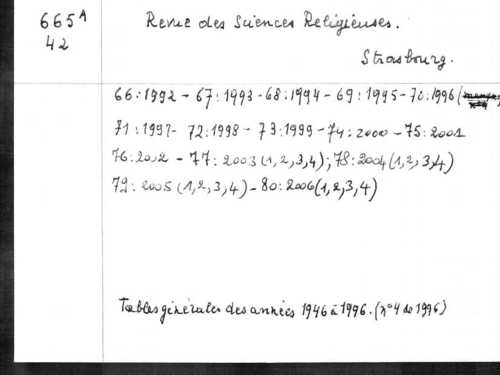 665 A Revue des Sciences Religieuses.
42
Strasbourg.
66:1992 - 67:1993 - 68:1994 - 69:1995 - 70:1996 (
71:1997 - 72:1998 - 73:1999 - 74:2000 - 75:2001
76:2002 - 77:2003 (1,2,3,4); 78:2004 (1,2,3,4)
79:2005 (1,2,3,4) - 80:2006 (1,2,3,4)
Tables générales des années 1946 à 1996. (n°4 de 1996)